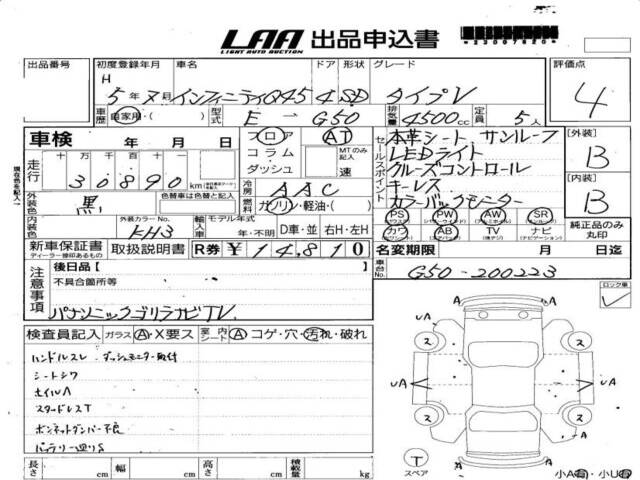 LAA 出品申込書
LIGHT AUTO AUCTION
*23007820*
出品番号 初度登録年月 車名 ドア 形状 グレード 評価点
H 5年 7月 インフィニティQ45 4 SD タイプV 4
車歴 自家用・( ) 型式 E - G50 排気量 4500cc 定員 5人
車検 年 月 日 フロア AT
コラム MTのみ記入
ダッシュ 速
走行 十 万 千 百 十
30890 km
冷房 AAC
セールスポイント
本革シート サンルーフ
LEDライト
クルーズコントロール
キーレス
カラーバックモニター
[外装] B
[内装] B
外装色 黒 色替車は色替と記入
燃料 ガソリン・軽油・( )
PS PW AW SR
カワ AB TV ナビ
純正品のみ丸印
内装色 外装カラーNo. KH3
輸入車 モデル年式 年・不明 D車・並 右H・左H
新車保証書 取扱説明書 R券 ¥14,810
ディーラー捺印あるもの
名変期限 月 日
車台No. G50-200223
注意事項 後日品[ ]
不具合箇所等
パナソニックゴリラナビTV.
ロック車
検査員記入 ガラス A・X要ス 室内シート A コゲ・穴・汚れ・破れ
ハンドルスレ ダッシュモニター取付
シートシワ
ホイルA
スタッドレスT
ボンネットダンパー不良
UA A
ス ス
UA A A UA
ス ス
T
スペア
長さ cm 幅 cm 高さ cm 積載量 kg